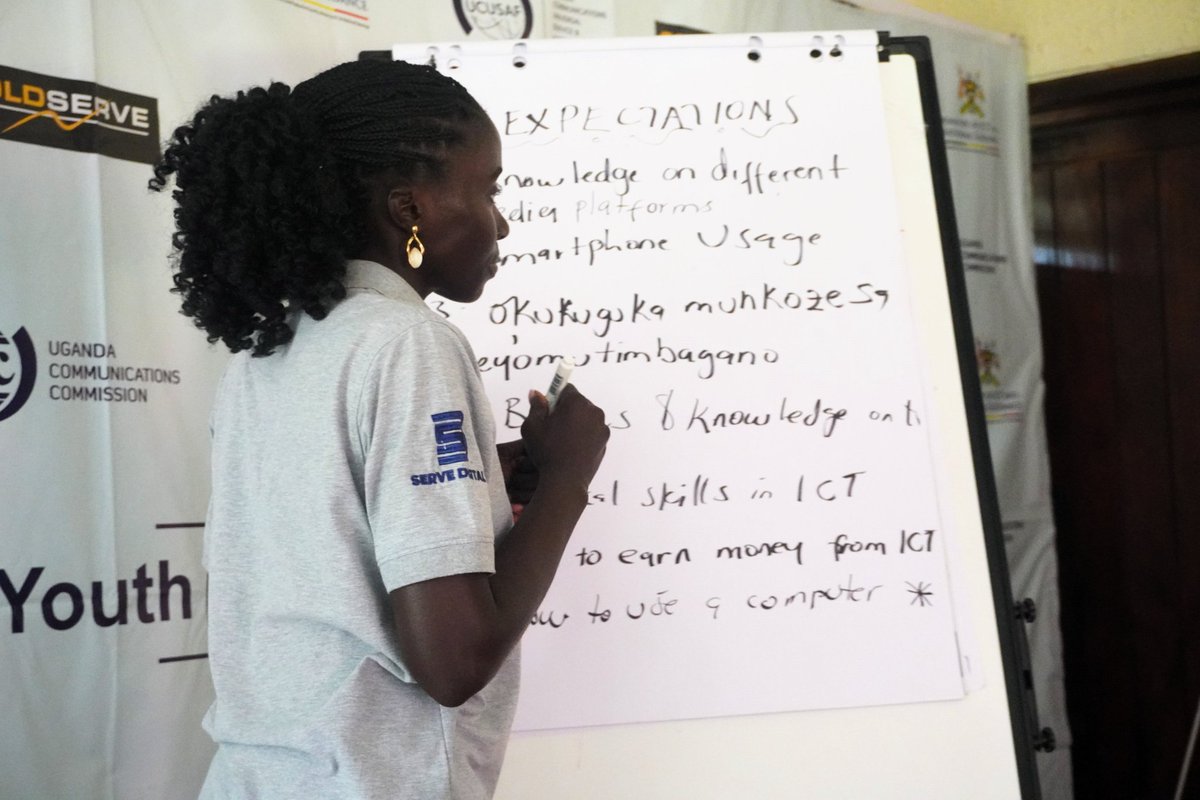 UCUSAF
COMMUNICATIONS
OLDSERVE
UGANDA
COMMUNICATIONS
COMMISSION
Youth
SERVE DIGITAL
EXPECTATIONS
nowledge on different
edia platforms
martphone Usage
3 okukuguka munkozesa
eyomutimbagano
B s & knowledge on
al skills in ICT
to earn money from ICT
ow to use a computer *